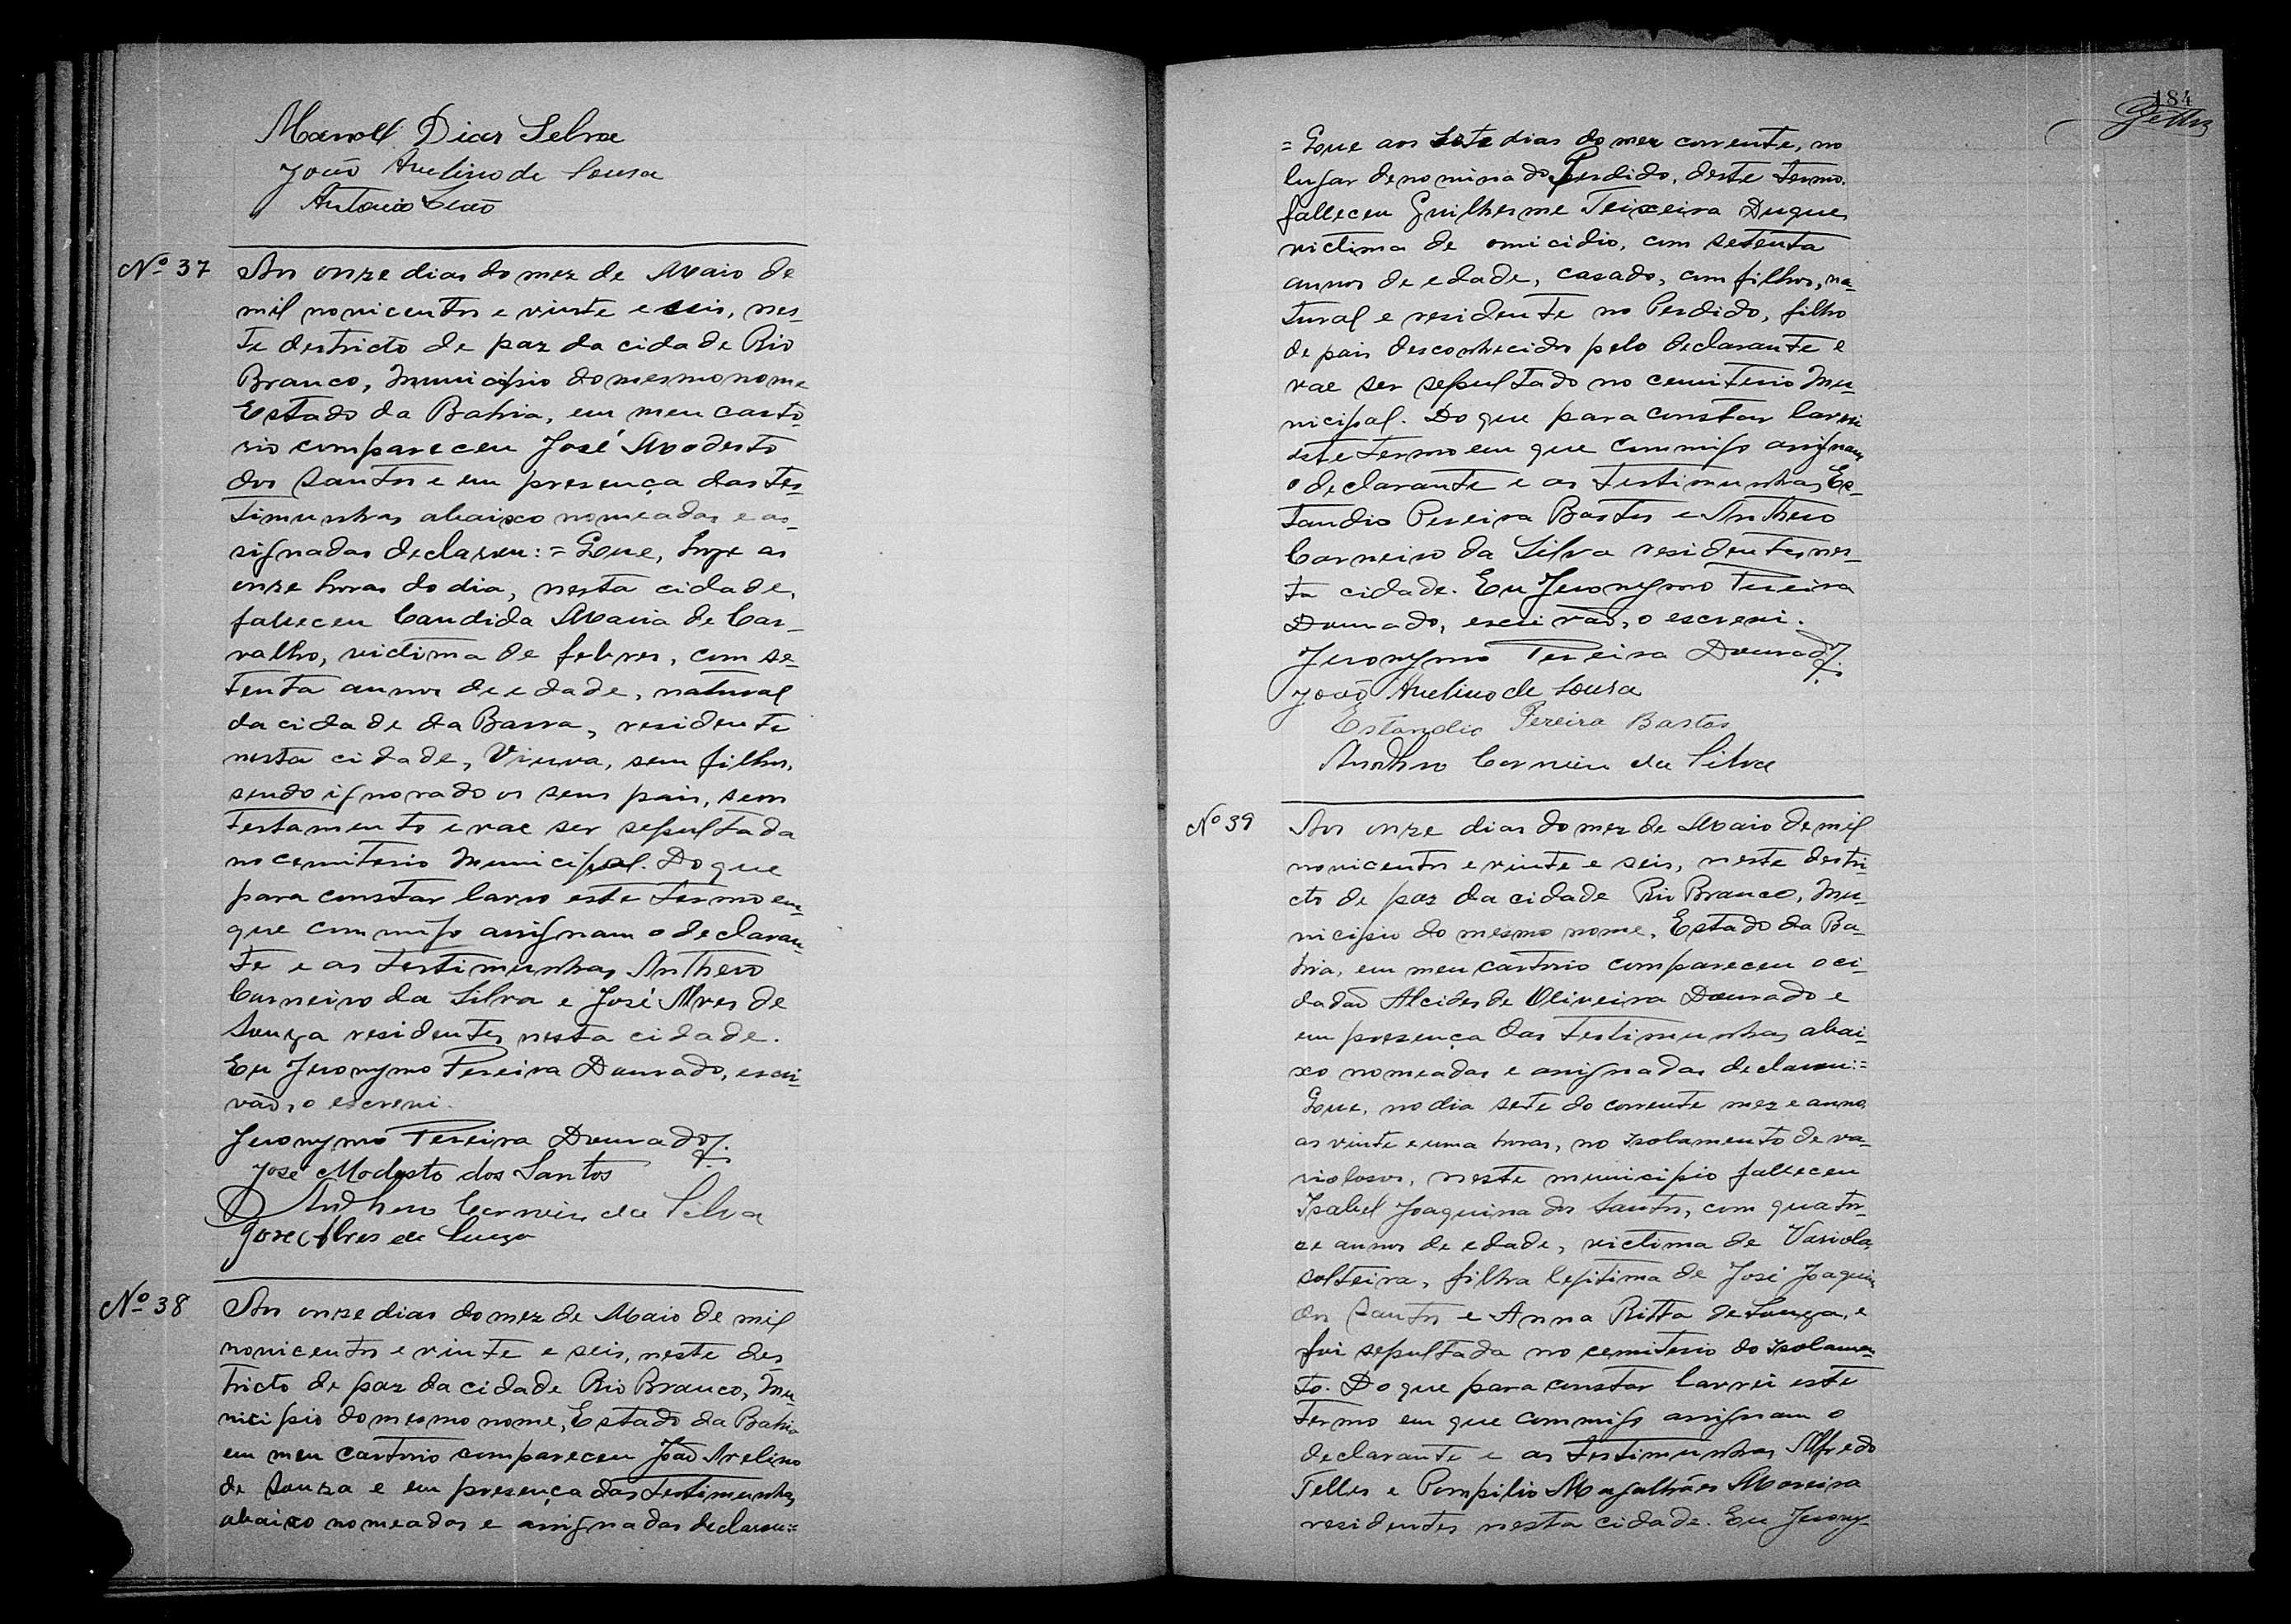 Manoel Dias Selva
João Avelino de Sousa
Antonio Leão
Nº 37
Aos onze dias do mez de Maio de
mil novicentos e vinte e seis, nes-
te destricto de paz da cidade Rio
Branco, Municipio do mesmo nome
Estado da Bahia, em meu carto-
rio compareceu José Modesto
dos Santos e em presença das tes-
timunhas abaixo nomeadas e as-
signadas declarou: = Que, hoje as
onze horas do dia, nesta cidade,
falleceu Candida Maria de Car-
valho, victima de febres, com se-
tenta annos de edade, natural
da cidade da Barra, residente
nesta cidade, Viuva, sem filhos,
sendo ignorado os seus pais, sem
testamento e vae ser sepultada
no cemiterio Municipal. Do que
para constar lavro este termo em
que commigo assignam o declaran-
te e as testimunhas Anthero
Carneiro da Silva e José Alves de
Souza residentes nesta cidade.
Eu Jeronymo Pereira Dourado, escri-
vão, o escrevi.
Jeronymo Pereira Dourado
José Modesto dos Santos
Anthero Carneiro da Silva
José Alves de Souza
Nº 38
Aos onze dias do mez de Maio de mil
novicentos e vinte e seis, neste des-
tricto de paz da cidade Rio Branco, Mu-
nicipio do mesmo nome, Estado da Bahia
em meu cartorio compareceu João Avelino
de Souza e em presença das testimunhas
abaixo nomeadas e assignadas declarou:=
184
= Que aos sete dias do mez corrente, no
lugar denominado Perdido, deste termo.
falleceu Guilherme Teixeira Duque,
victima de omicidio, com setenta
annos de edade, casado, com filhos, na-
tural e residente no Perdido, filho
de pais desconhecidos pelo declarante e
vae ser sepultado no cemiterio Mu-
nicipal. Do que para constar lavrei
este termo em que commigo assignam
o declarante e as testimunhas Es-
tandio Pereira Bastos e Anthero
Carneiro da Silva residentes nes-
ta cidade. Eu Jeronymo Pereira
Dourado, escrivão, o escrevi.
Jeronymo Pereira Dourado
João Avelino de Sousa
Estandio Pereira Bastos
Anthero Carneiro da Silva
Nº 39
Aos onze dias do mez de Maio de mil
novicentos e vinte e seis, neste destri-
cto de paz da cidade Rio Branco, Mu-
nicipio do mesmo nome, Estado da Ba-
hia, em meu cartorio compareceu o ci-
dadão Alcides de Oliveira Dourado e
em presença das testimunhas abai-
xo nomeadas e assignadas declarou:=
Que, no dia sete do corrente mez e anno,
as vinte e uma horas, no isolamento de va-
riolosos, neste municipio falleceu
Isabel Joaquina dos Santos, com quator-
ze annos de edade, victima de Variola,
solteira, filha legitima de José Joaquim
dos Santos e Anna Ritta de Souza, e
foi sepultada no cemiterio do isolamen-
to. Do que para constar lavrei este
termo em que commigo assignam o
declarante e as testimunhas Alfredo
Telles e Pompilio Magalhães Moreira
residentes nesta cidade. Eu Jerony-